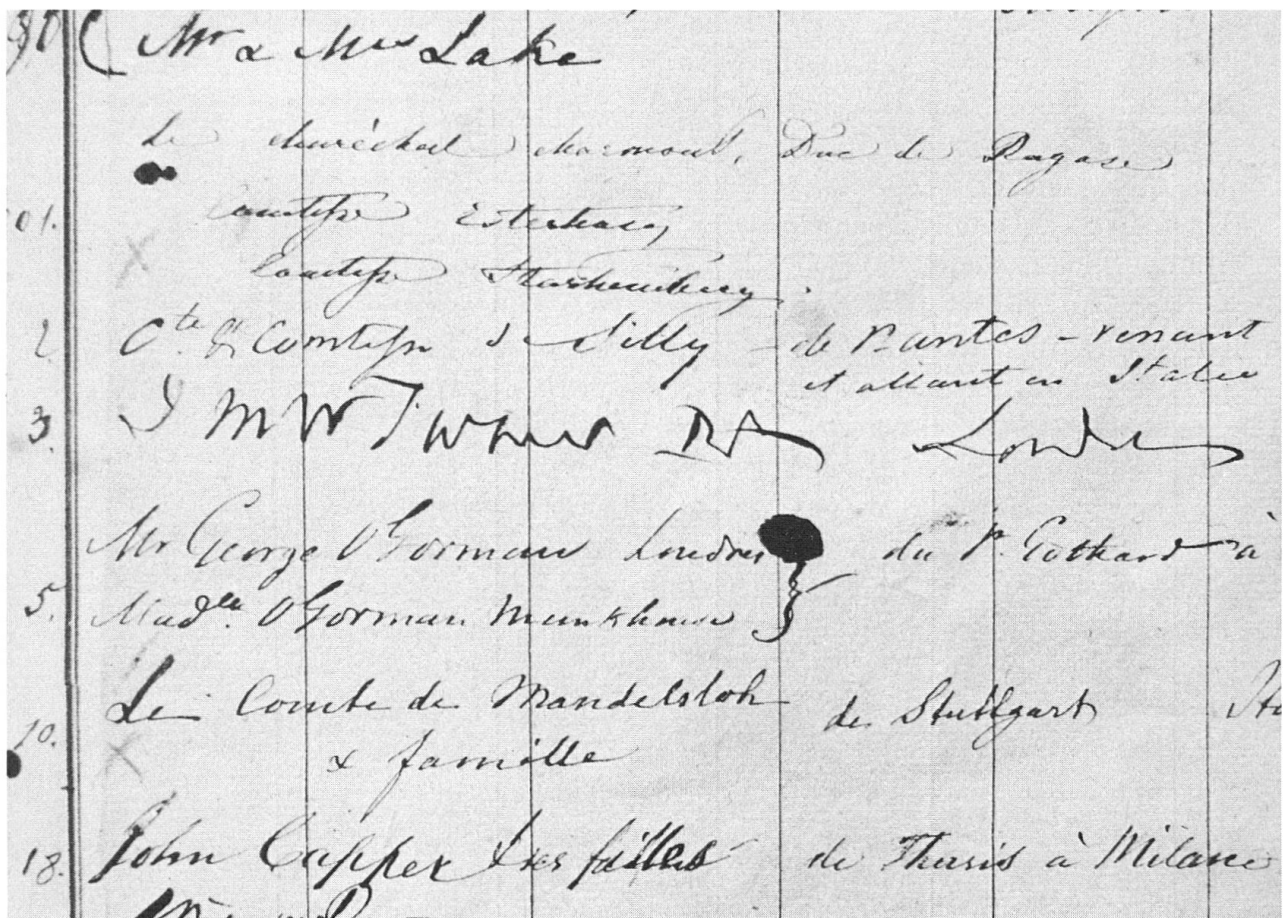 Mr & Mrs Lake
Le Maréchal Marmont, Duc de Raguse
01. Comtesse Esterhazy
Comtesse
2 Cte & Comtesse de Silly - de Nantes - venant
et allant en Italie
3. J M W Turner RA London
Mr George O'Gorman Londres du St. Gothard à
5. Madlle. O'Gorman Munkhouse
Le Comte de Mandelsloh de Stuttgart
10. & famille
18. John Capper & ses filles de Thusis à Milane